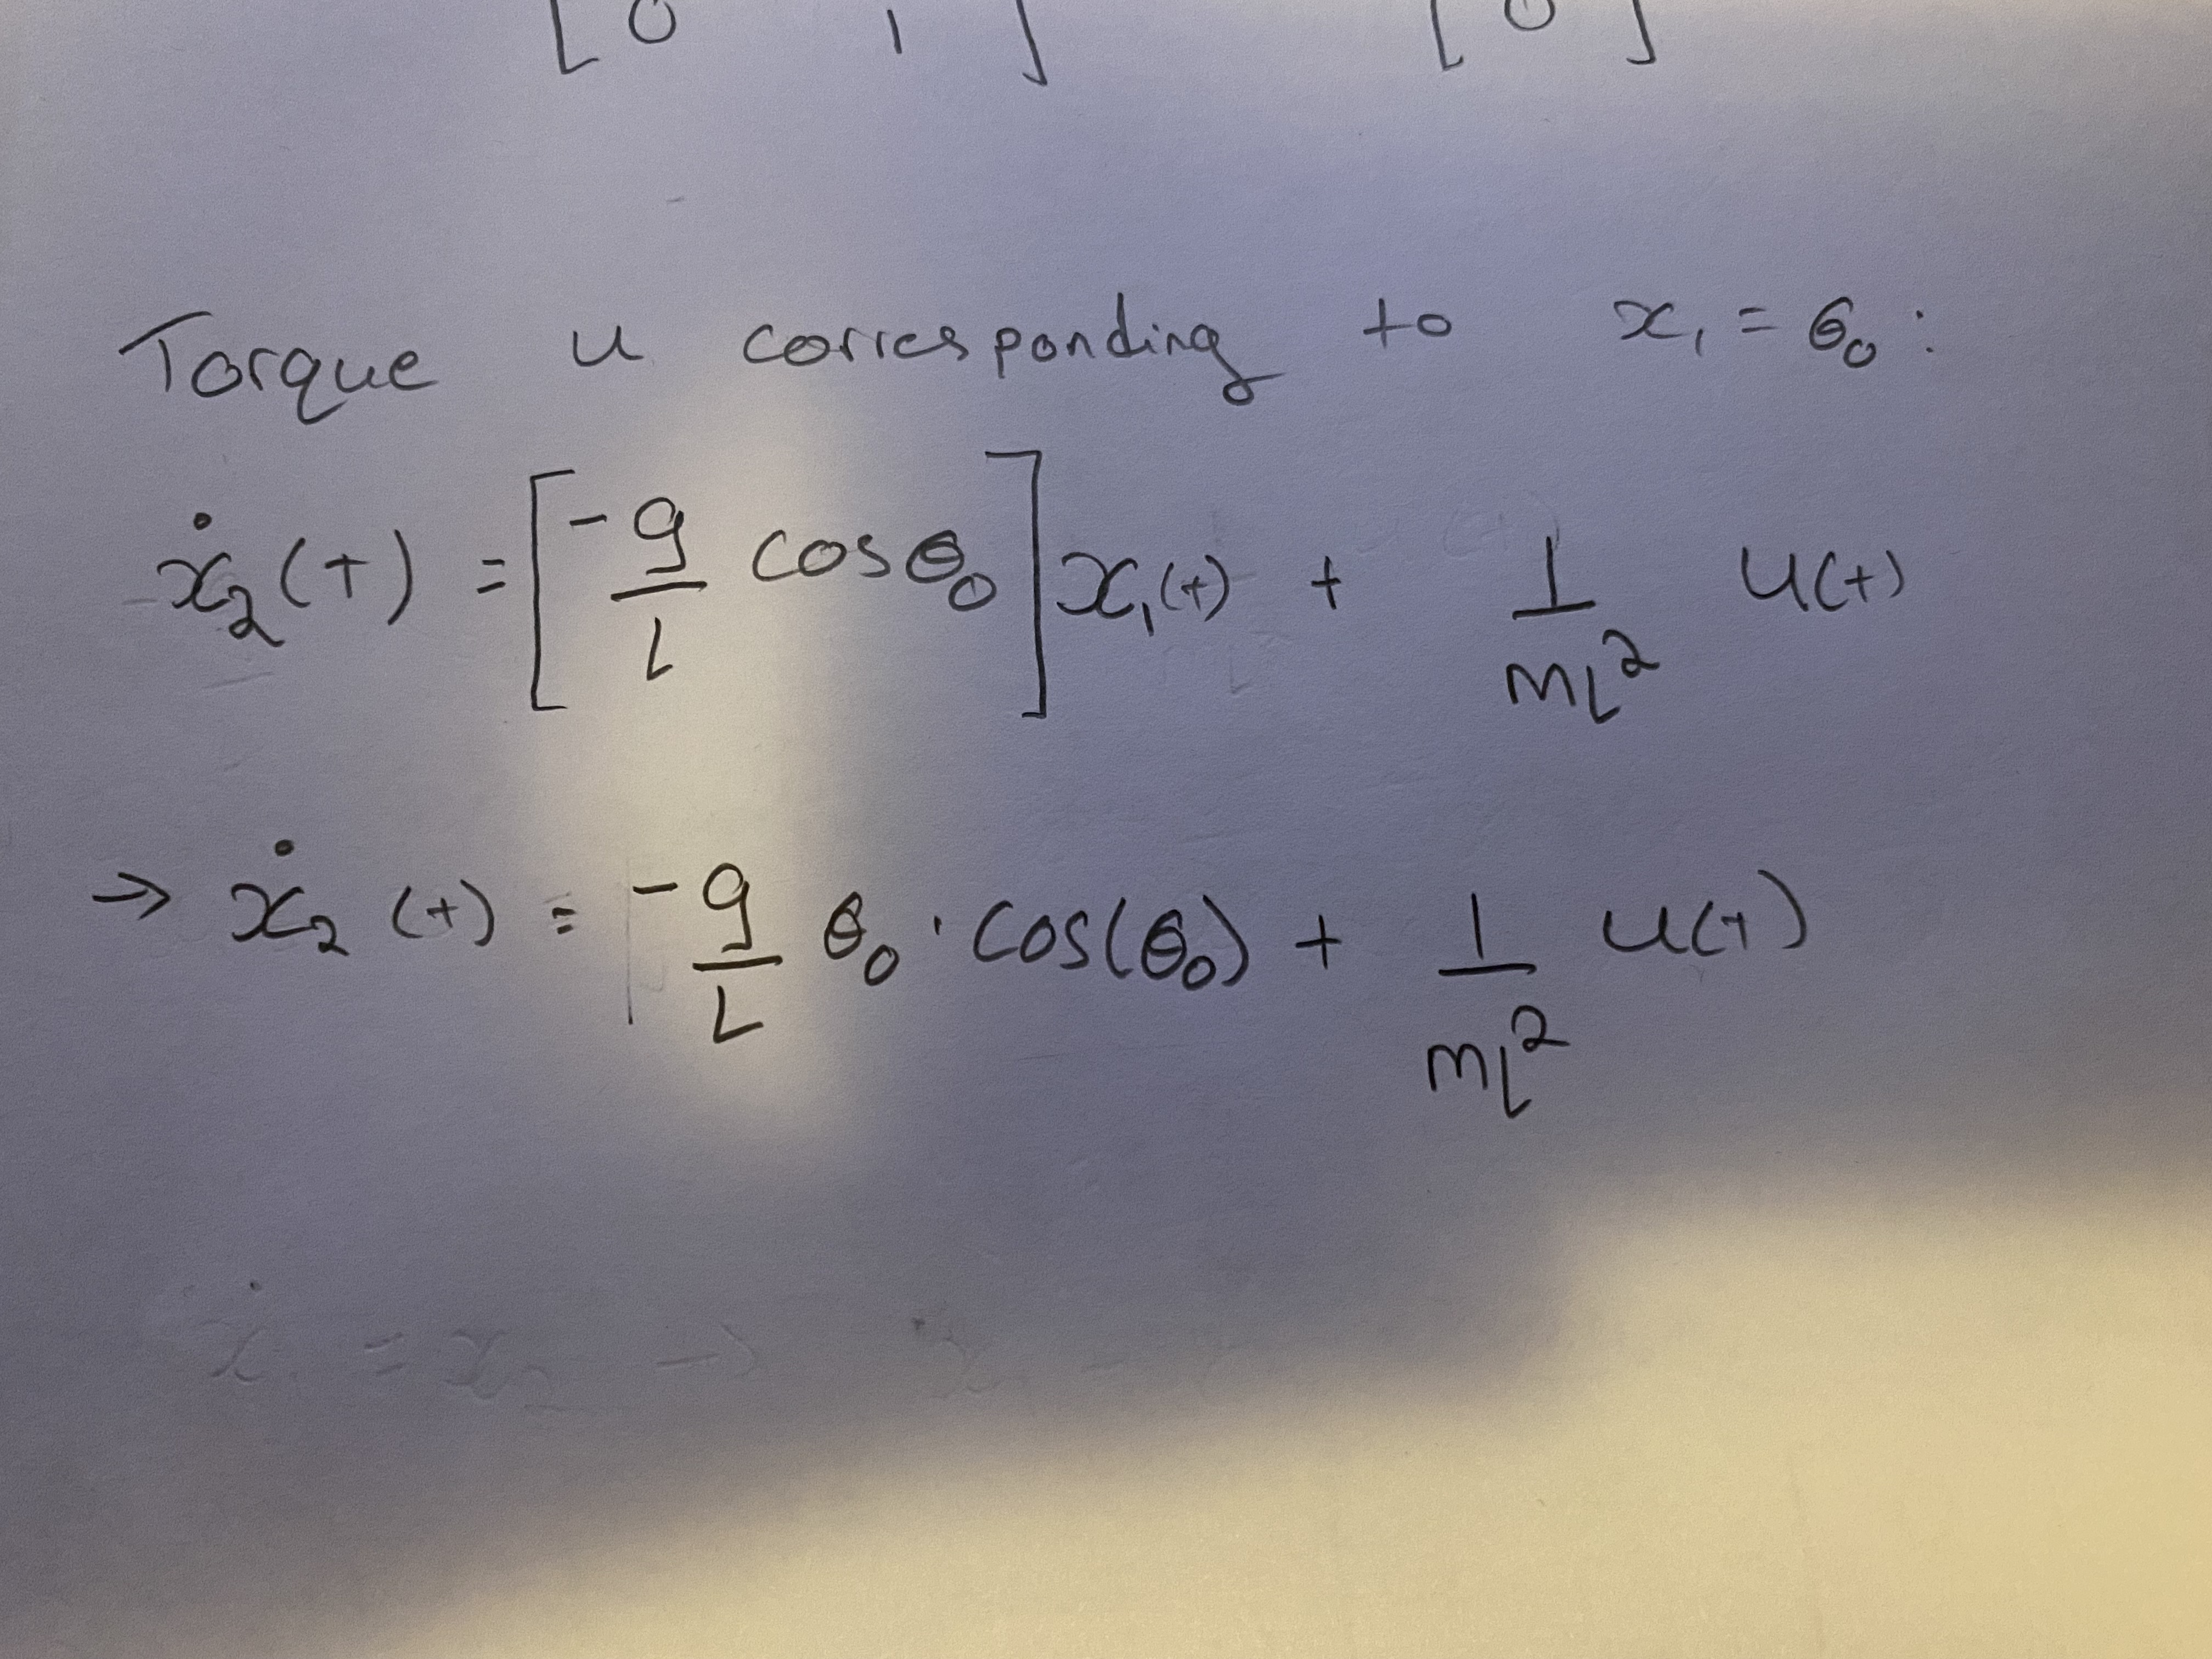 [ 0 1 ] [ 0 ]
Torque u corresponding to x₁ = θ₀ :
ẋ₂(t) = [ -g/l cosθ₀ ] x₁(t) + 1/ml² u(t)
→ ẋ₂ (t) = -g/L θ₀ · cos(θ₀) + 1/ml² u(t)